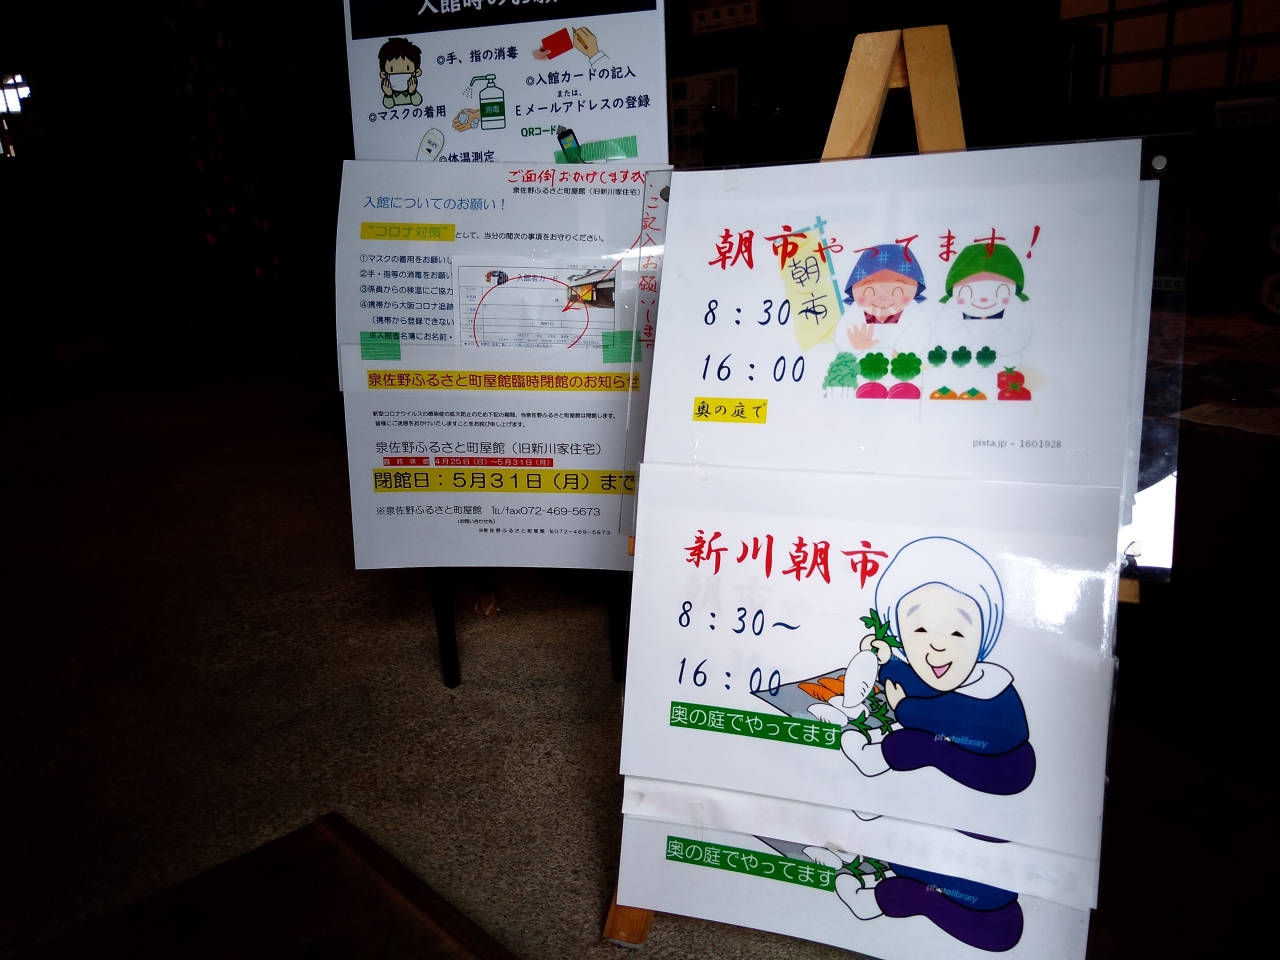 入館時のお願い
◎手、指の消毒
◎入館カードの記入
または、
Eメールアドレスの登録
◎マスクの着用
消毒
QRコード
◎体温測定
ご面倒おかけしますが
泉佐野ふるさと町屋館(旧新川家住宅)
ご記入お願いします
入館についてのお願い!
"コロナ対策"として、当分の間次の事項をお守りください。
①マスクの着用をお願いし
②手・指等の消毒をお願い
③係員からの検温にご協力
④携帯から大阪コロナ追跡
(携帯から登録できない
※入館者名簿にお名前・
入館者カード
泉佐野ふるさと町屋館臨時閉館のお知らせ
新型コロナウイルスの感染症の拡大防止のため下記の期間、当泉佐野ふるさと町屋館は閉館します。
皆様にご迷惑をおかけいたしますことをお詫び申し上げます。
泉佐野ふるさと町屋館(旧新川家住宅)
臨時休館 4月25日(日)~5月31日(月)
閉館日:5月31日(月)まで
※泉佐野ふるさと町屋館 ℡/fax072-469-5673
(お問い合わせ先)
※泉佐野ふるさと町屋館 ℡072-469-5673
朝市やってます!
朝市
8:30~
16:00
奥の庭で
pixta.jp - 1601928
新川朝市
8:30~
16:00
奥の庭でやってます
photolibrary
奥の庭でやってます
photolibrary